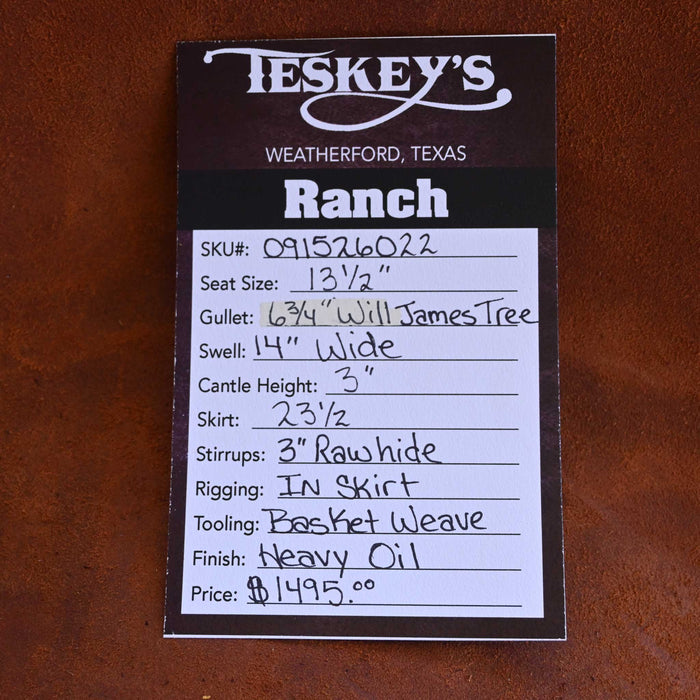 TESKEY'S
WEATHERFORD, TEXAS
Ranch
SKU#: 091526022
Seat Size: 13 1/2"
Gullet: 6 3/4" Will James Tree
Swell: 14" Wide
Cantle Height: 3"
Skirt: 23 1/2
Stirrups: 3" Rawhide
Rigging: IN Skirt
Tooling: Basket Weave
Finish: Heavy Oil
Price: $1495.00